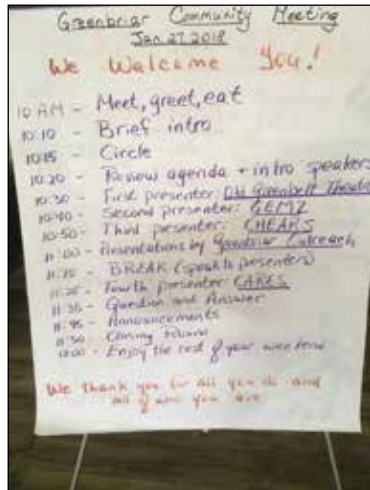 Greenbriar Community Meeting
Jan 27 2018
We Welcome You!
10 AM - Meet, greet, eat
10:10 - Brief intro
10:15 - Circle
10:20 - Review agenda + intro speakers
10:30 - First presenter: Old Greenbelt Theatre
10:40 - Second presenter: GEMZ
10:50 - Third presenter: CHEARS
11:00 - Presentations by Greenbriar Outreach
11:15 - BREAK (speak to presenters)
11:25 - Fourth presenter: CARES
11:35 - Question and Answer
11:45 - Announcements
11:50 - Closing
12:00 - Enjoy the rest of your weekend
We thank you for all you do and
all of who you are